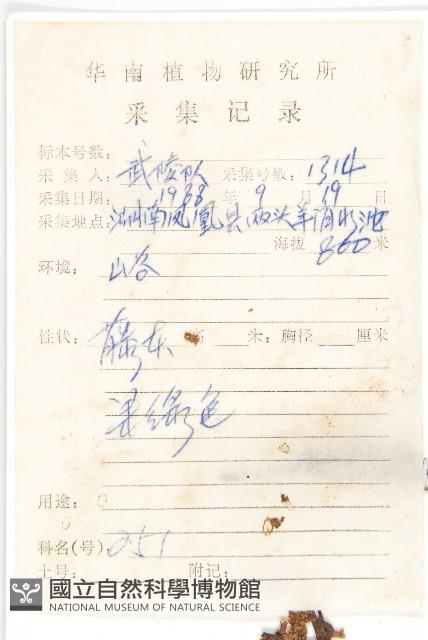 华南植物研究所
采集记录
标本号数：
采集人：武陵队 采集号数：1314
采集日期：1988年9月19日
采集地点：湖南凤凰县两头羊消水池
海拔 860 米
环境：山谷
性状：藤本 高 米；胸径 厘米
果绿色
用途：
科名(号)：251
土号： 附记：
國立自然科學博物館
NATIONAL MUSEUM OF NATURAL SCIENCE